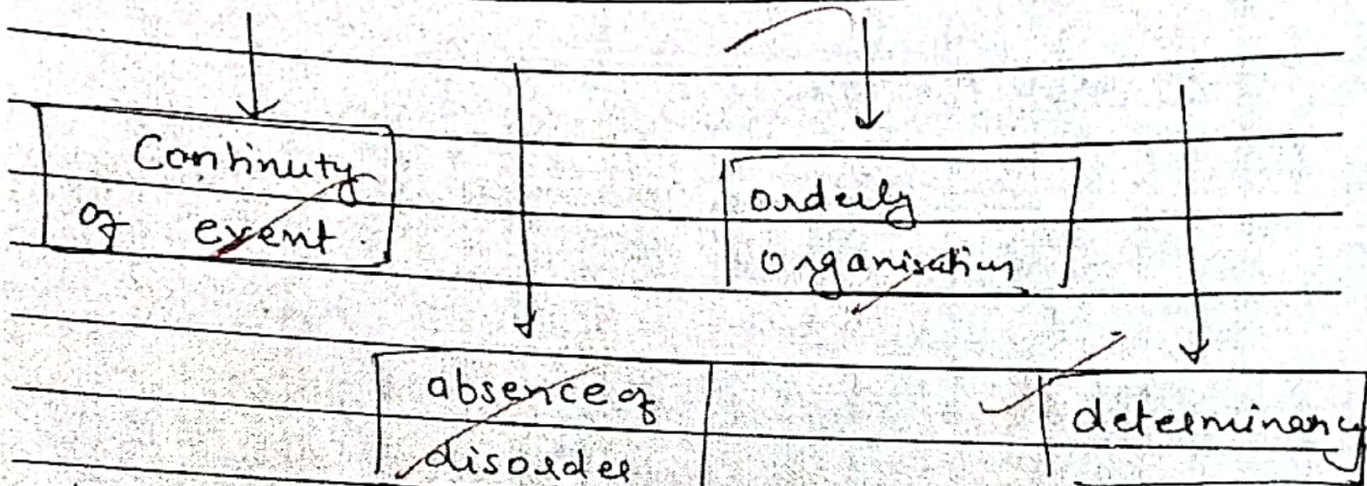 Continuty
of event.
orderly
organisation
absence of
disorder
determinancy